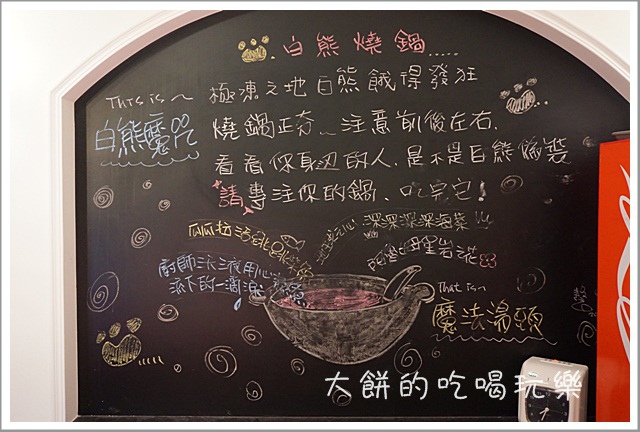 白熊燒鍋.....
This is~
白熊魔咒
極凍之地白熊餓得發狂
燒鍋正夯~注意前後左右,
看看你身边的人,是不是白熊偽裝
請專注你的鍋、吃完它!
深深深深海菜
廚師三次三滾用心
滴下的一滴淚
That is~
魔法湯頭
大餅的吃喝玩樂